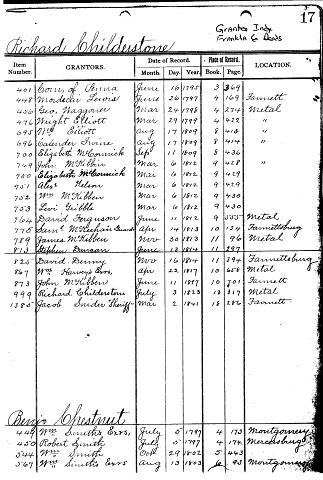 17
Grantee Index
Franklin Co Deeds
Richard Childerstone
Item Number. GRANTORS. Date of Record. Place of Record. LOCATION.
Month. Day. Year Book. Page
401 Com. of Penna June 16 1795 3 369
448 Mordecai Lewis June 26 1797 4 169 Fannett
456 Geo. Waggoner Mar 24 1798 4 274 Metal
476 Wright Elliott Mar 29 1799 4 422 "
695 Elliott Aug 17 1809 8 413 "
696 Calender Irvine Aug 17 1809 8 414 "
700 Elizabeth McCormick Sept 11 1809 8 436 "
749 John McKibben Mar 6 1812 9 428 "
750 Elizabeth McCormick Mar 6 1812 9 429
751 Alex Nelson Mar 6 1812 9 429
752 Wm McKibben Mar 6 1812 9 430
753 Levi Gribble Mar 6 1812 9 430
764 David Ferguson June 11 1812 9 555 Metal
770 Apr 14 1813 10 124 Fannettsburg
789 James McKibben Nov 30 1813 11 96 Metal
813 Stephen Duncan June 13 1814 11 297
825 David Denny Nov 16 1814 11 394 Fannettsburg
867 Wm Harvey's Exrs, Apr 22 1817 10 658 Metal
873 John McKibben June 11 1887 10 701 Fannett
999 Richard Childerstone July 3 1823 13 317 Metal
1385 Jacob Snider Sheriff Mar 2 1841 18 286 Fannett
Benj. Chestnut
449 Wm Smith's Exrs, July 5 1797 4 173 Montgomery
450 Robert Smith July 5 1797 4 174 Mercersburg
544 Wm Smith Oct 29 1802 5 443
567 Wm Smith's Exrs Aug 13 1803 6 95 Montgomery